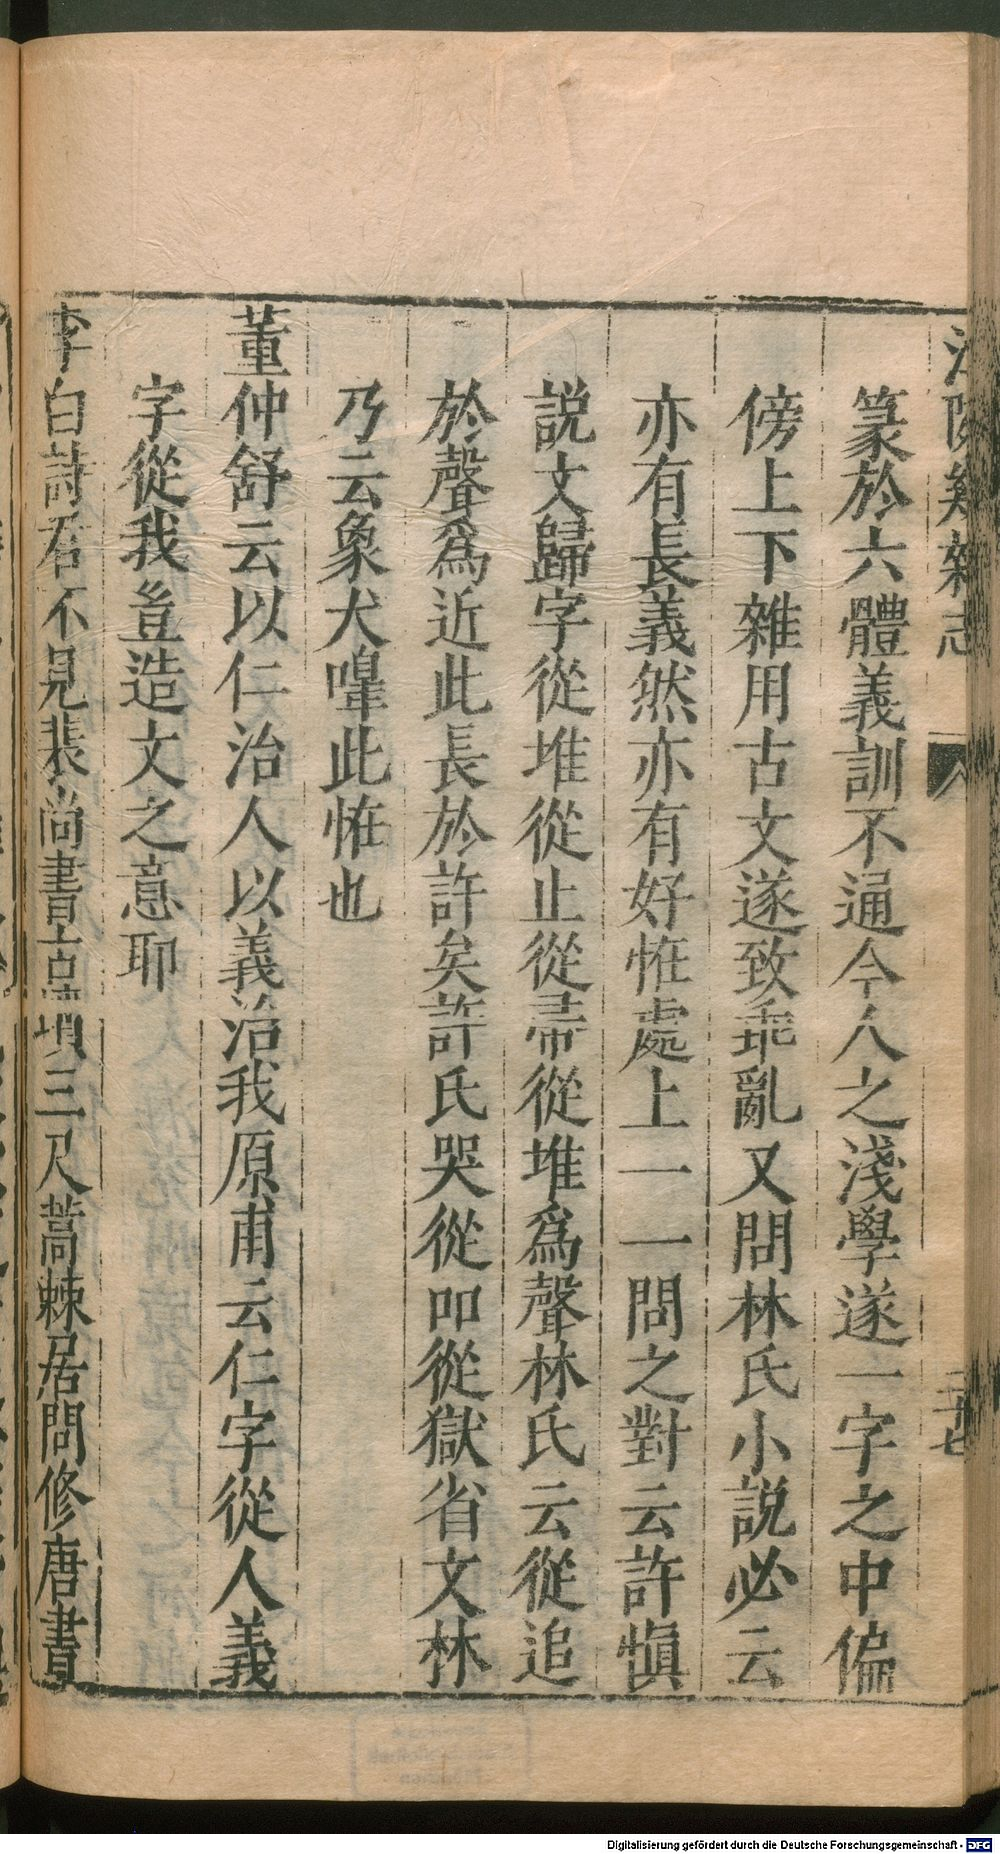 江隣幾雜志
篆於六體義訓不通今人之淺學遂一字之中偏
傍上下雜用古文遂致乖亂又問林氏小說必云
亦有長義然亦有好恠處上一一問之對云許慎
說文歸字從堆從止從帚從堆爲聲林氏云從追
於聲爲近此長於許矣許氏哭從吅從獄省文林
乃云象犬嘷此恠也
董仲舒云以仁治人以義治我原甫云仁字從人義
字從我豈造文之意耶
李白詩君不見裴尚書古墳三尺蒿棘居問修唐書
Digitalisierung gefördert durch die Deutsche Forschungsgemeinschaft - DFG